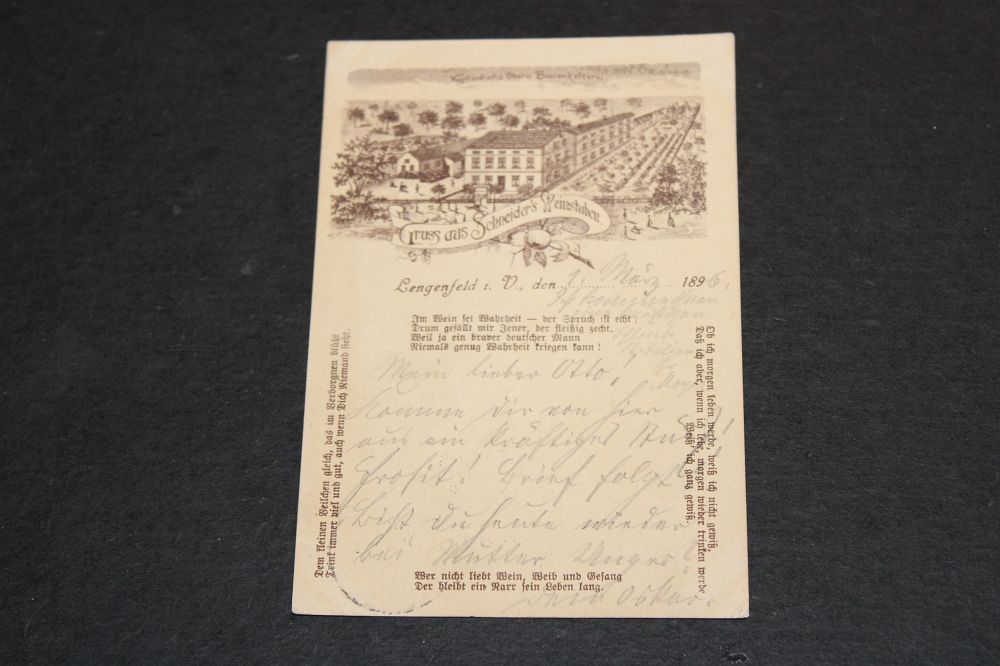 Gruss aus Schneider's Weinstuben
Lengenfeld i. V., den 1. März 1896.
Im Wein sei Wahrheit — der Spruch ist echt:
Drum gefällt mir Jener, der fleißig zecht,
Weil ja ein braver deutscher Mann
Niemals genug Wahrheit kriegen kann!
Mein lieber Otto!
Komme Dir von hier
aus ein kräftiges
Prosit! Brief folgt!
Bist Du heute wieder
bei Mutter Unger?
Dein Oskar.
Dem kleinen Veilchen gleich, das im Verborgnen blüht
Trink immer viel und gut, auch wenn Dich Niemand sieht.
Ob ich morgen leben werde, weiß ich nicht gewiß,
Daß ich aber, wenn ich lebe, morgen wieder trinken werde
Weiß ich ganz gewiß.
Wer nicht liebt Wein, Weib und Gesang
Der bleibt ein Narr sein Leben lang.